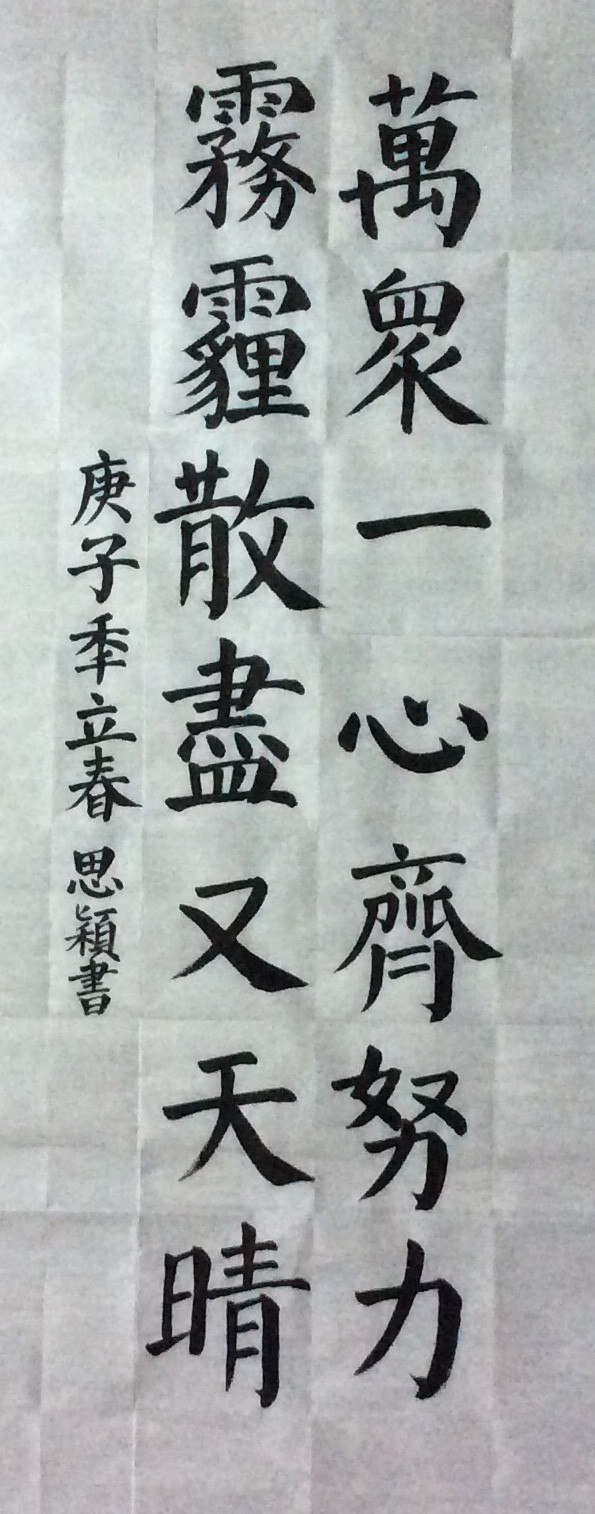 萬眾一心齊努力
霧霾散盡又天晴
庚子年立春 思穎書